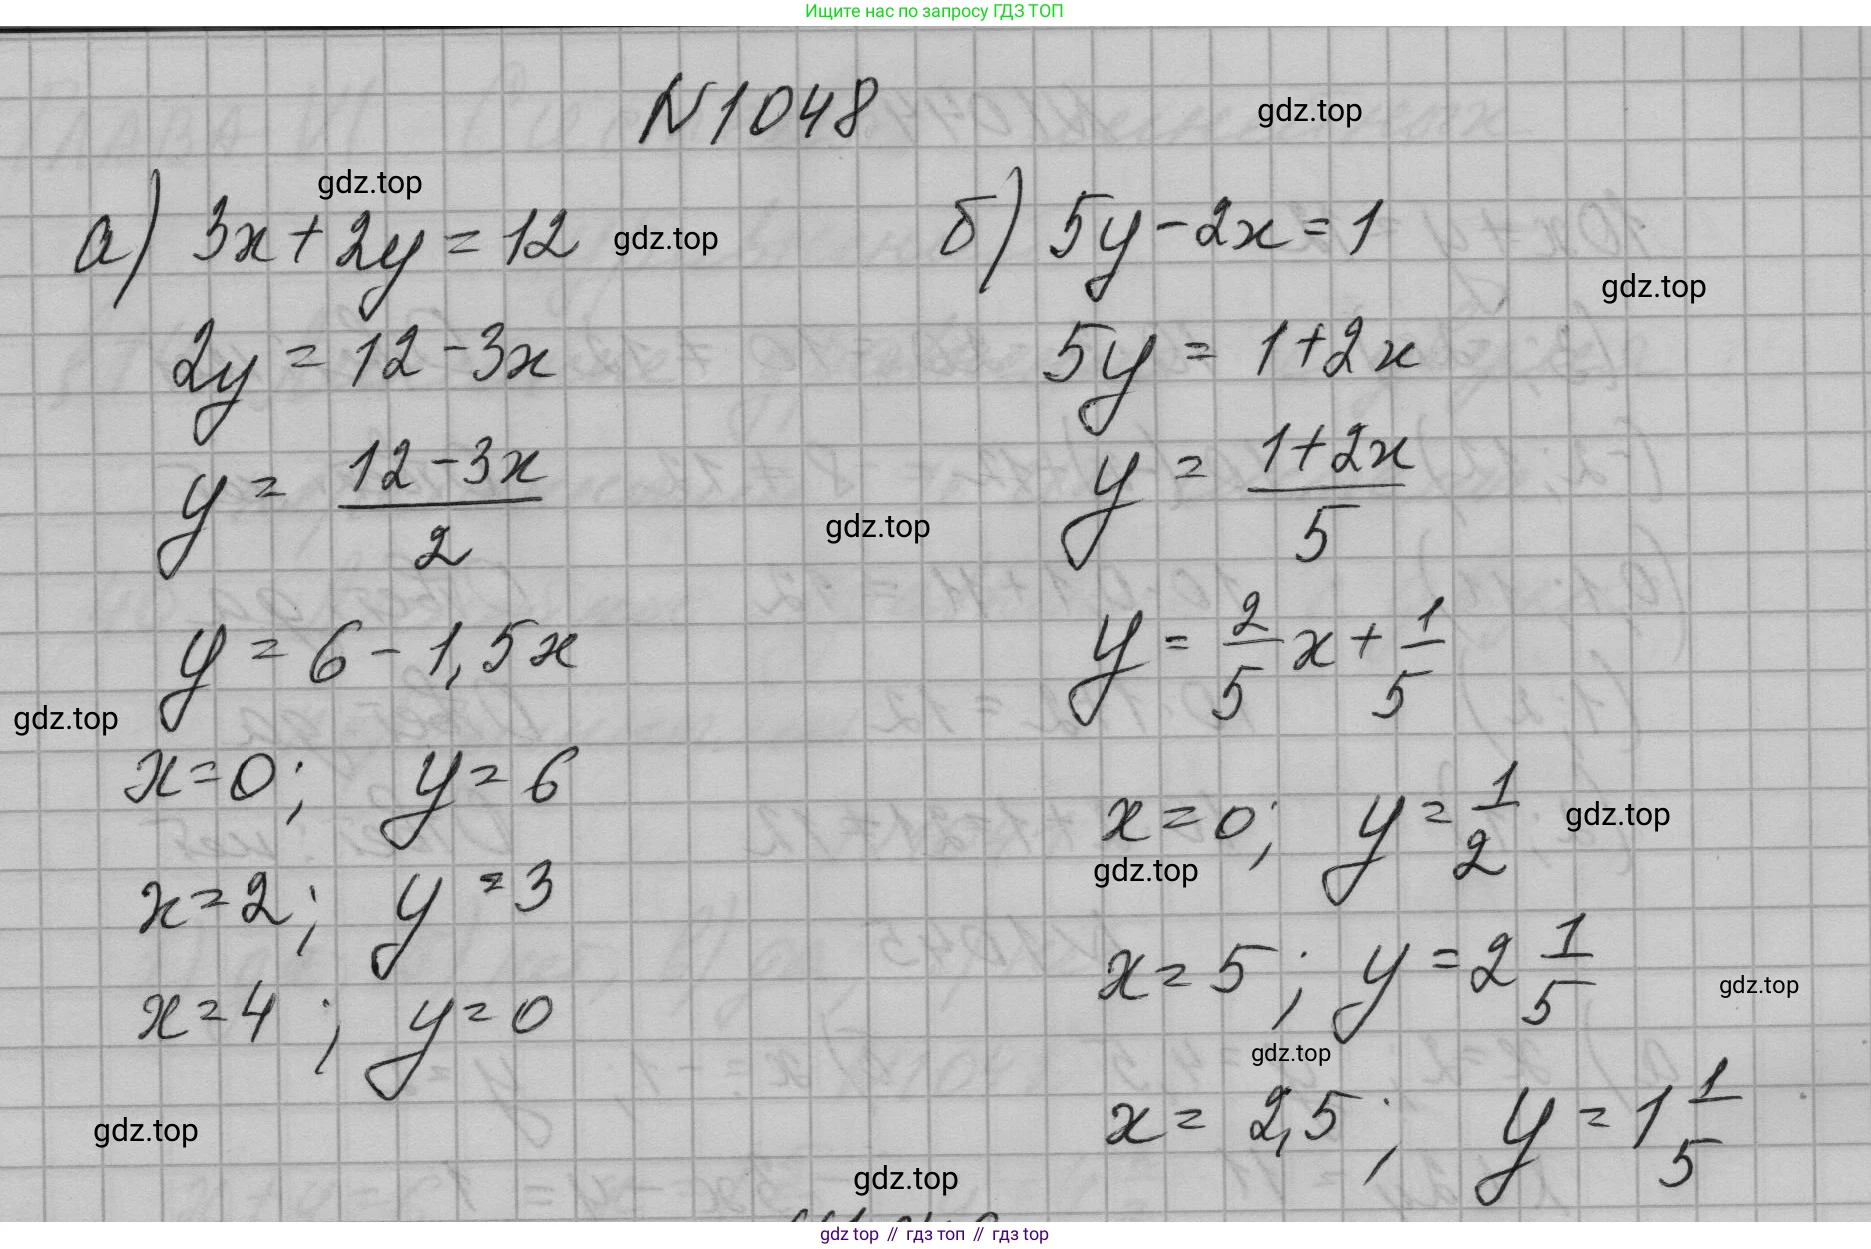 Ищите нас по запросу ГДЗ ТОП
N1048
gdz.top
gdz.top
а) 3x + 2y = 12
gdz.top
2y = 12 - 3x
y = (12 - 3x)/2
y = 6 - 1,5x
gdz.top
x = 0; y = 6
x = 2; y = 3
x = 4; y = 0
gdz.top
б) 5y - 2x = 1
gdz.top
5y = 1 + 2x
y = (1 + 2x)/5
gdz.top
y = 2/5 x + 1/5
x = 0; y = 1/2
gdz.top
gdz.top
x = 5; y = 2 1/5
gdz.top
gdz.top
x = 2,5; y = 1 1/5
gdz.top
gdz top // гдз топ // gdz top